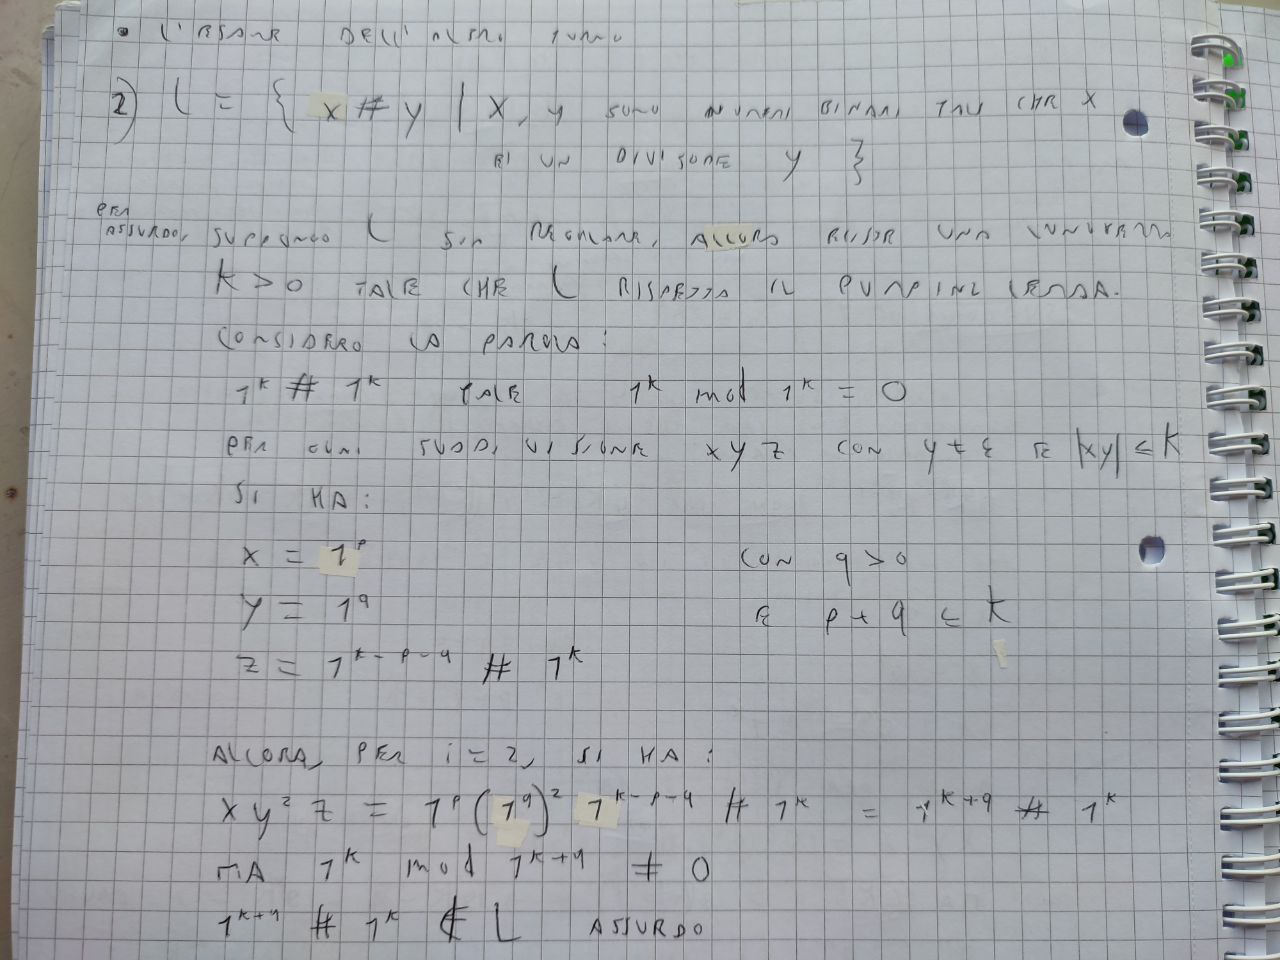 • L'ESAME DELL'ALTRO TURNO
2) L = { x # y | x, y SONO NUMERI BINARI TALI CHE X
È UN DIVISORE Y }
PER ASSURDO, SUPPONGO L SIA REGOLARE, ALLORA ESISTE UNA LUNGHEZZA
K > 0 TALE CHE L RISPETTA IL PUMPING LEMMA.
CONSIDERO LA PAROLA:
1^K # 1^K TALE 1^K mod 1^K = 0
PER OGNI SUDDIVISIONE x y z CON y ≠ ε E |xy| ≤ K
SI HA:
x = 1^p CON q > 0
y = 1^q E p + q ≤ K
z = 1^{K-p-q} # 1^K
ALLORA, PER i = 2, SI HA:
x y² z = 1^p (1^q)² 1^{K-p-q} # 1^K = 1^{K+q} # 1^K
MA 1^K mod 1^{K+q} ≠ 0
1^{K+q} # 1^K ∉ L ASSURDO